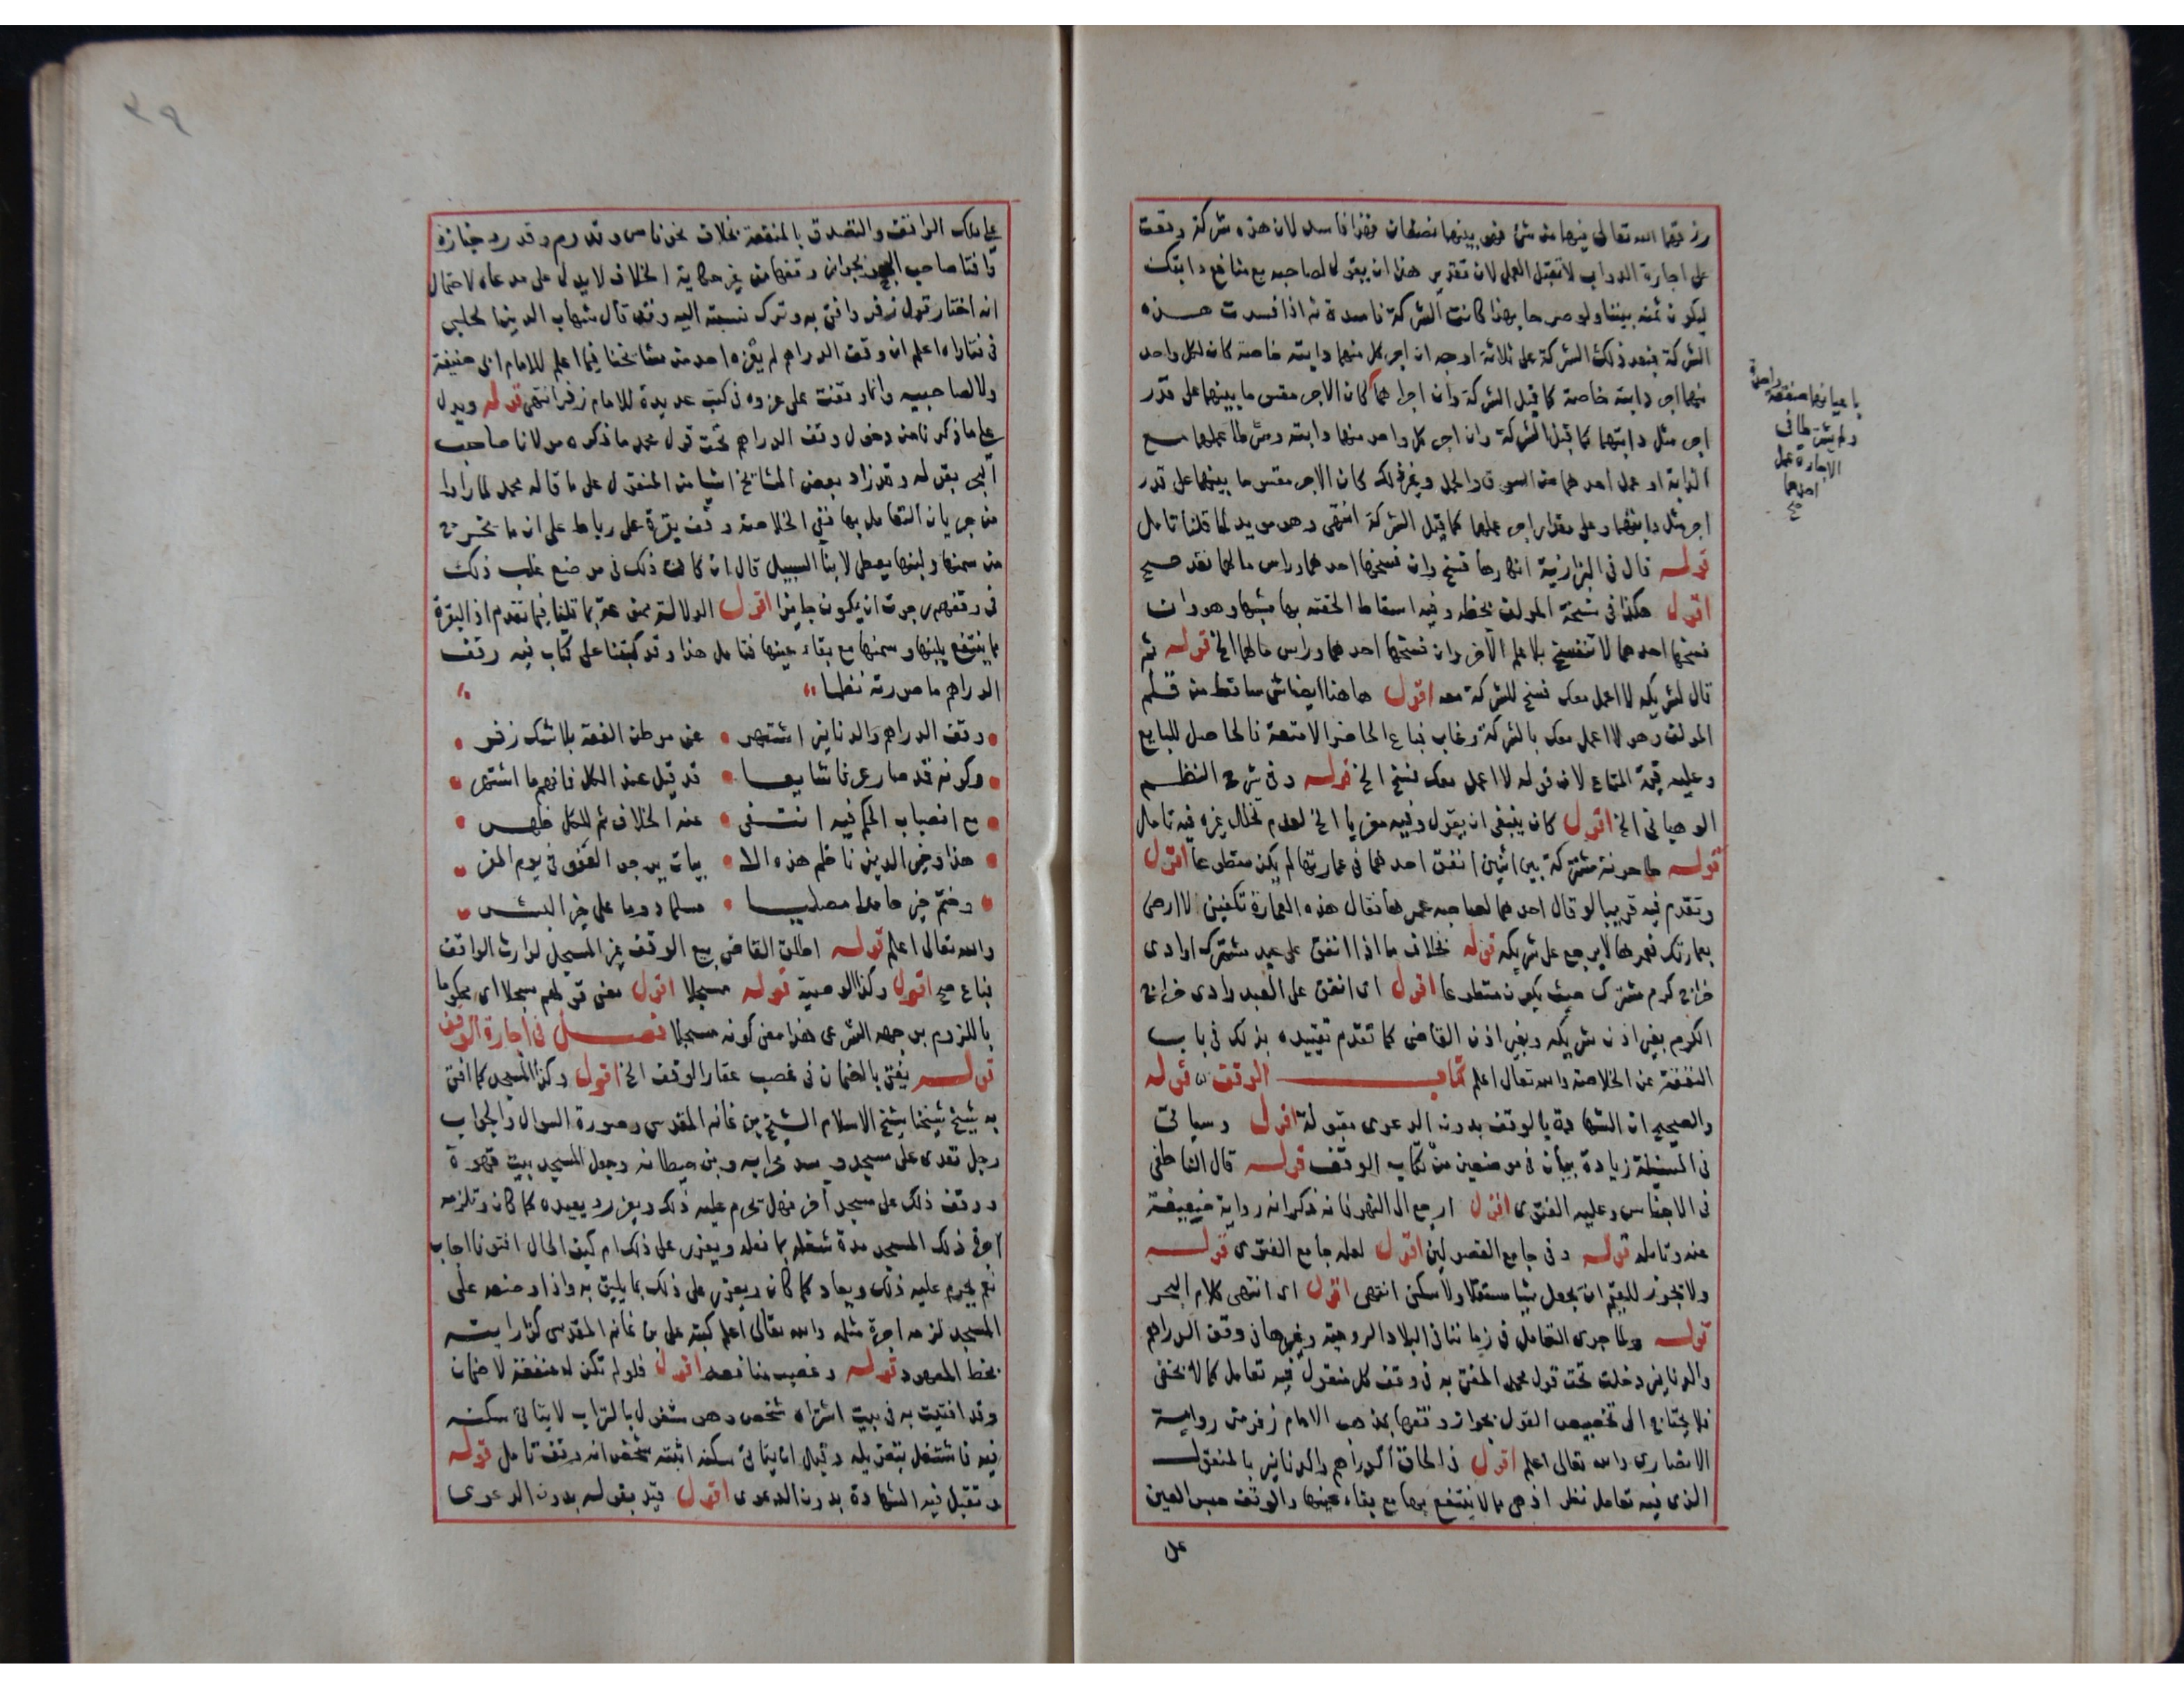 رزقهما الله تعالى فيهما من شئ فهو بينهما نصفان فهذا فاسد لان هذه شركة وقعت
على اجارة الدواب لا تقبل العمل لان تقدير هذا ان يقول لصاحبه بع منافع دابتك
ليكون ثمنه بيننا ولو صرحا بهذا كانت الشركة فاسدة ثم اذا فسدت هذه
الشركة فبعد ذلك الشركة على ثلاثة اوجه ان اجر كل منهما دابته خاصة كان لكل واحد
منهما اجر دابته خاصة كما قبل الشركة وان اجراهما كان الاجر مقسوما بينهما على قدر
اجر مثل دابتهما كما قبل الشركة وان اجر كل واحد منهما دابته وشرطا عملهما مع
الدابة او عمل احدهما من السوق والحمل وغير ذلك كان الاجر مقسوما بينهما على قدر
اجر مثل دابتهما وعلى مقدار اجر عملهما كما قبل الشركة انتهى وهو مويد لما قلنا تامل
قوله قال في البزازية انكرها فسخ وان فسخها احدهما وراس مالهما نقد صح
اقول هكذا في نسخة المولف بخطه وفيه اسقاط
فسخها احدهما لا تنفسخ بلا علم الآخر وان فسخها احدهما وراس مالهما الخ قوله ثم
قال لشريكه لا اعمل معك فسخ للشركة معه اقول هاهنا ايضا شئ ساقط من قلم
المولف وهو لا اعمل معك بالشركة وغاب فباع الحاضر الامتعة فالحاصل للبايع
وعليه قيمة المتاع لان قوله لا اعمل معك فسخ الخ قوله وفي شرح النظم
الوهباني الخ اقول كان ينبغي ان يقول وفيه معزيا الخ لعدم تخلل غيره فيه تامل
قوله طاحونة مشتركة بين اثنين انفق احدهما في عمارتها لم يكن متطوعا اقول
وتقدم فيه قريبا لو قال احدهما لصاحبه عمرها فقال هذه العمارة تكفيني لا ارضى
بعمارتك فعمرها لا يرجع على شريكه قوله بخلاف ما اذا انفق على عبد مشترك او ادى
خراج كرم مشترك حيث يكون متطوعا اقول اى انفق على العبد وادى خراج
الكرم بغير اذن شريكه وبغير اذن القاضى كما تقدم تقييده بذلك في باب
النفقة عن الخلاصة والله تعالى اعلم كتاب الوقف قوله
والصحيح ان الشهادة بالوقف بدون الدعوى مقبولة اقول وسياتى
في المسئلة زيادة بيان في موضعين من كتاب الوقف قوله قال الناطفى
في الاجناس وعليه الفتوى اقول ارجع الى النهر فانه ذكر انه رواية ضعيفة
عنه وتامله قوله وفي جامع الفصولين اقول لعله جامع الفتوى قوله
ولا يجوز للقيم ان يجعل شيا مستغلا ولا سكنى انتهى اقول اى انتهى كلام البحر
قوله ولما جرى التعامل في زماننا في البلاد الرومية وغيرها في وقف الدراهم
والدنانير دخلت تحت قول محمد المفتى به في وقف كل منقول فيه تعامل كما لا يخفى
فلا يحتاج الى تخصيص القول بجواز وقفها بمذهب الامام زفر من رواية
الانصارى والله تعالى اعلم اقول في الحاق الدراهم والدنانير بالمنقول
الذى فيه تعامل نظر اذ هى مما لا ينتفع بها مع بقاء عينها والوقف حبس العين
على
باعيانهما صفقة واحدة
ولم يشترطا في
الاجارة عمل
احدهما
صح
٣٩
على ملك الواقف والتصدق بالمنفعة بخلاف نحو فاس وقدوم وقدر وجنازة
وافتا صاحب البحر بجواز وقفها من غير حكاية الخلاف لا يدل على مدعاه لاحتمال
انه اختار قول زفر وافتى به وترك نسبته اليه وقد قال شهاب الدين الحلبي
في فتاواه اعلم ان وقف الدراهم لم يعزه احد من مشايخنا فيما اعلم للامام ابى حنيفة
ولا لصاحبيه وانما وقفت على عزوه في كتب عديدة للامام زفر انتهى قوله ويدل
على ما ذكرنا من دخول وقف الدراهم تحت قول محمد ما ذكره مولانا صاحب
البحر بقوله وقد زاد بعض المشايخ اشيا من المنقول على ما قاله محمد لما راوا
من جريان التعامل بها ففي الخلاصة وقف بقرة على رباط على ان ما يخرج
من سمنها ولبنها يعطى لابنا السبيل قال ان كان ذلك في موضع غلب ذلك
في وقفهم رجوت ان يكون جايزا اقول الدلالة ممنوعة بما قلنا فيما تقدم اذ البقرة
مما ينتفع بلبنها وسمنها مع بقاء عينها فتامل هذا وقد كتبنا على كتاب فيه وقف
الدراهم ما صورته نظما
وقف الدراهم والدنانير اشتهر عن موطن الفقه بلا شك زفر
وكونه قد صار عرفا شايعا قد قيل عند الكل فافهم ما اشتهر
مع انصباب الحكم فيه انتفى عنه الخلاف ثم للكل ظهر
هذا وخير الدين ناظم هذه الا بيات يرجو العفو في يوم المفر
وختم خير حامدا مصليا مسلما دوما على خير البشر
والله تعالى اعلم قوله اطلق القاضى بيع الوقف غير المسجل لوارث الواقف
فباع صح اقول وكذا الوصية قوله مسجلا اقول معنى قولهم مسجلا اى محكوما
باللزوم من جهة الشرعى هذا معنى كونه مسجلا فصل في اجارة الوقف
قوله يفتى بالضمان في غصب عقار الوقف الخ اقول وكذا المسجد كما افتى
به شيخ شيخنا شيخ الاسلام الشيخ بن غانم المقدسى وصورة السوال والجواب
رجل تعدى على مسجد وسد محرابه وبنى حيطانه وجعل المسجد بيت قهوة
ووقف ذلك على مسجد آخر فهل يحرم عليه ذلك ويعزر ويعيده كما كان وتلزمه
اجرة ذلك المسجد مدة شغله بما فعله ويعزر على ذلك ام كيف الحال افتونا اجاب
نعم يحرم عليه ذلك ويعاد كما كان ويعزر على ذلك بما يليق به واذا
المسجد لزمه اجرة مثله والله تعالى اعلم كتبه على بن غانم المقدسى كذا رايته
بخطه المعهود قوله وغصب منافعه اقول فلو لم تكن له منفعة لا ضمان
وقد افتيت به في بيت اشتراه شخص وهو مشغول بالتراب لا يتاتى سكنه
فيه فاشتغل بتعزيله وقبل ان يتاتى سكنه اثبته شخص انه وقف تامل قوله
وتقبل فيه الشهادة بدون الدعوى اقول قيد بقوله بدون الدعوى